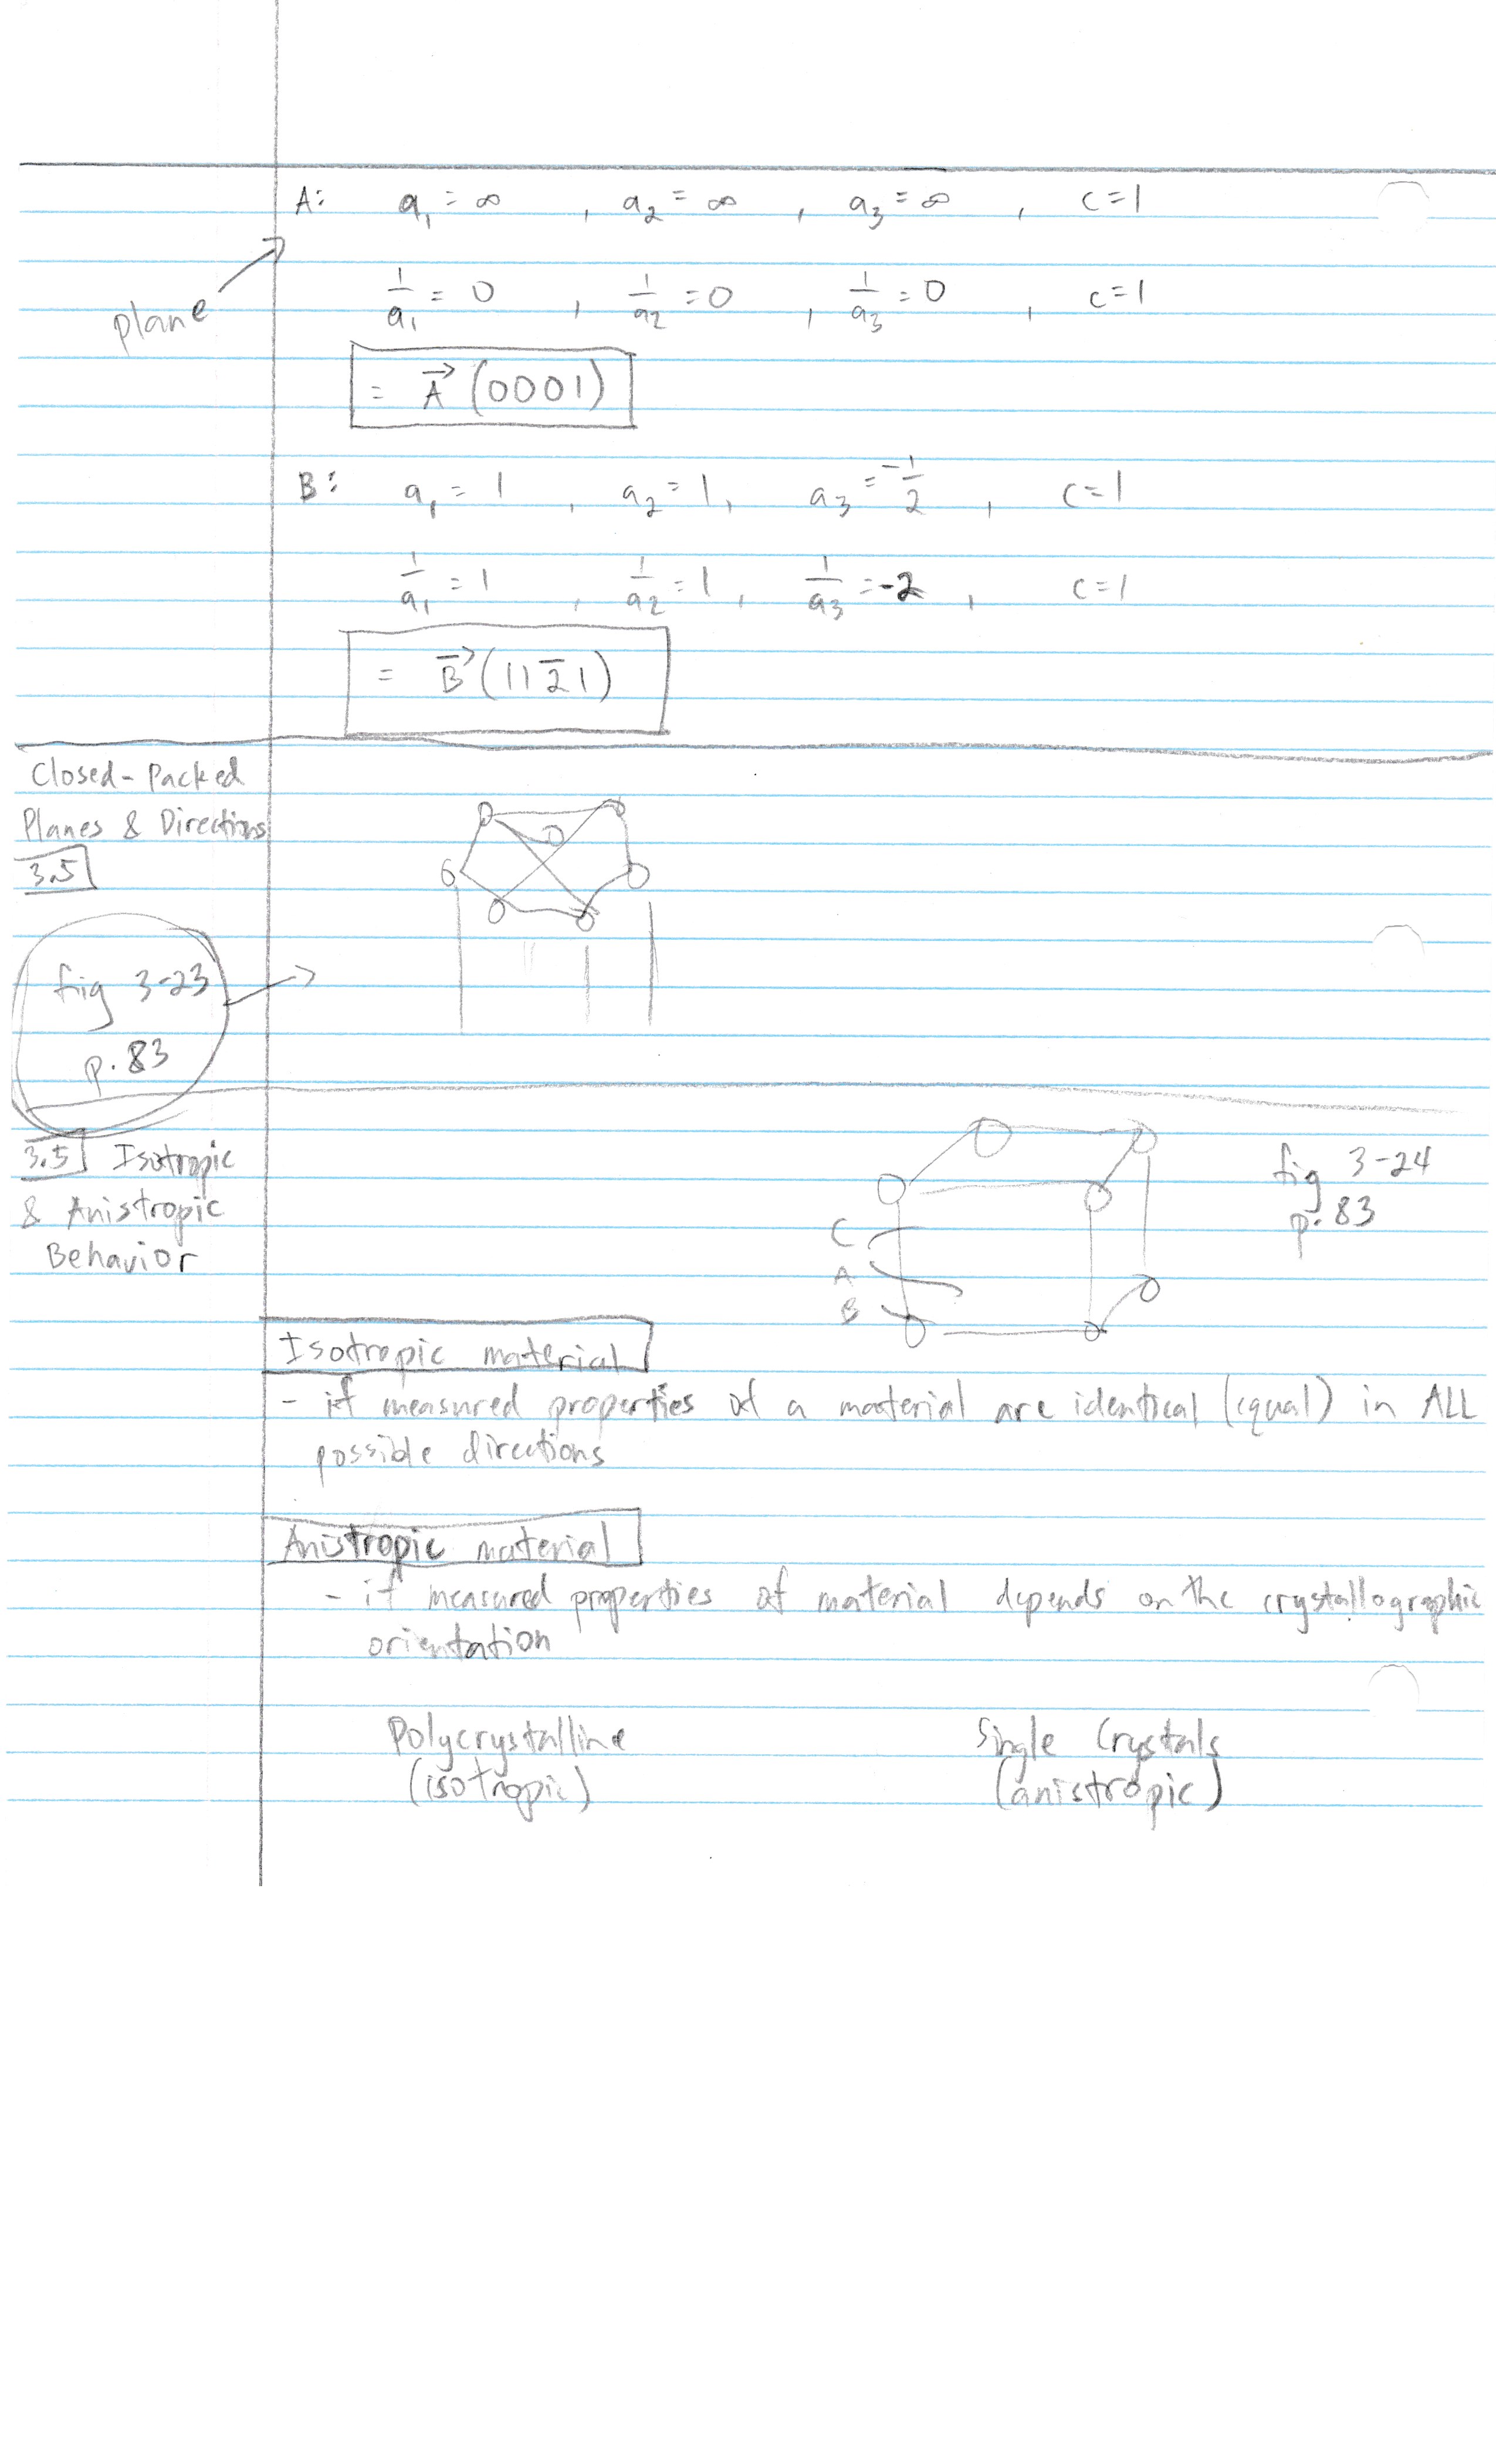 A: a₁ = ∞ , a₂ = ∞ , a₃ = ∞ , c=1
plane
1/a₁ = 0 , 1/a₂ = 0 , 1/a₃ = 0 , c=1
= A⃗ (0001)
B: a₁ = 1 , a₂ = 1, a₃ = -1/2 , c=1
1/a₁ = 1 , 1/a₂ = 1, 1/a₃ = -2 , c=1
= B⃗ (112̄1)
Closed-Packed
Planes & Directions
3.5
fig 3-23
p. 83
3.5 Isotropic
& Anistropic
Behavior
fig 3-24
p. 83
C
A
B
Isotropic material
- if measured properties of a material are identical (equal) in ALL
possible directions
Anistropic material
- if measured properties of material depends on the crystallographic
orientation
Polycrystalline
(isotropic)
Single Crystals
(anistropic)